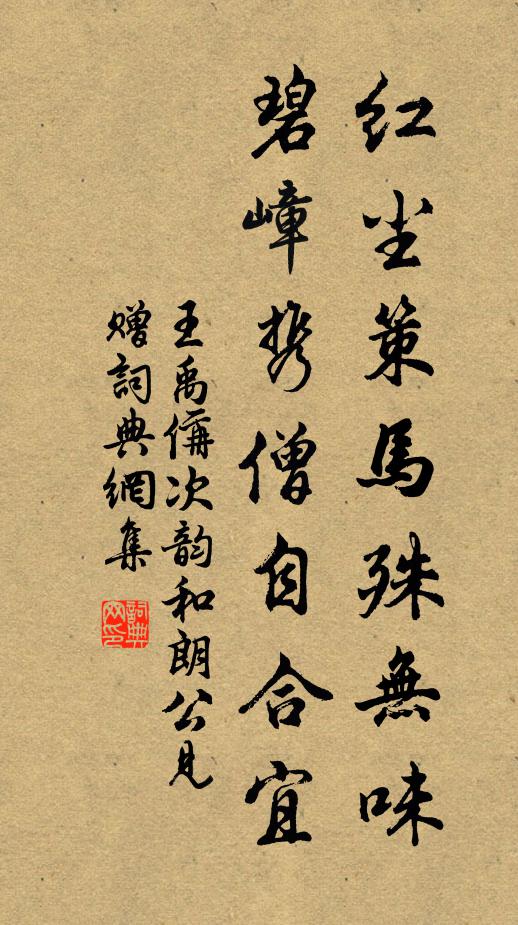 红尘策馬殊無味
碧嶂携僧自合宜
王禹偁次韵和朗公見
贈詞典網集
詞典网印